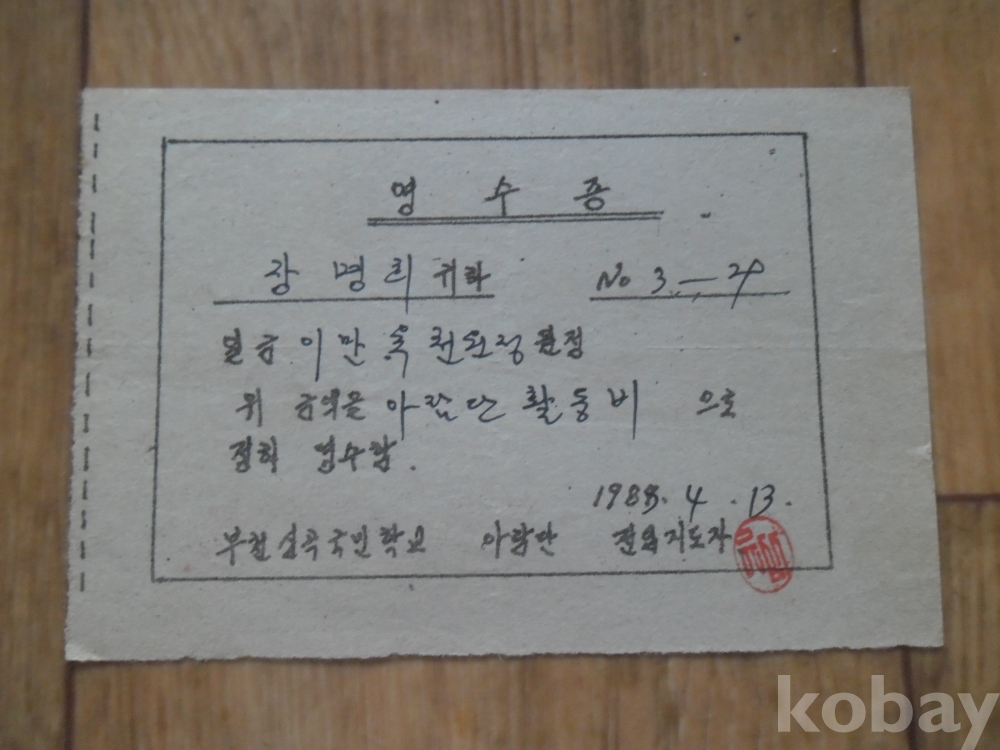 영 수 증
장 명 희 귀하 No 3 - 24
일금 이 만 육 천원정 원정
위 금액을 아람단 활동비 으로
정히 영수함.
4 . 13.
부천심곡국민학교 아람단 전임지도자
kobay